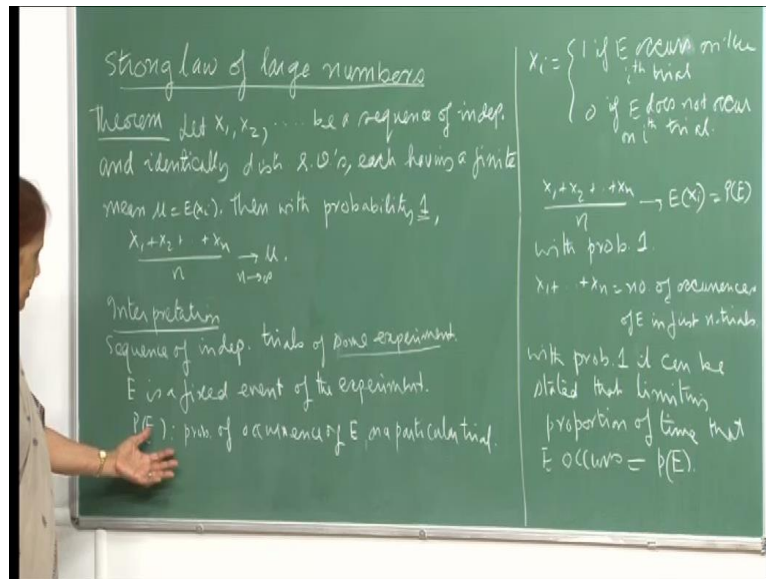 Strong law of large numbers
Theorem Let X₁, X₂, .... be a sequence of indep.
and identically distr. r.v's, each having a finite
mean μ = E(Xᵢ). Then with probability 1,
X₁+X₂+ .. +Xₙ
n
→ μ.
n→∞
Interpretation
Sequence of indep. trials of some experiment.
E is a fixed event of the experiment.
P(E): prob. of occurrence of E, on a particular trial.
Xᵢ = { 1 if E occurs on the
iᵗʰ trial
0 if E does not occur
on iᵗʰ trial.
X₁+X₂+ .. +Xₙ
n
→ E(Xᵢ) = P(E)
with prob. 1.
X₁+ .. +Xₙ = no. of occurrences
of E in first n trials.
with prob. 1 it can be
stated that limiting
proportion of time that
E occurs = P(E).